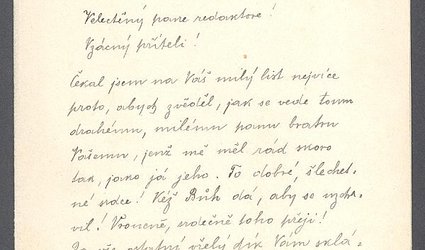 Velectěný pane redaktore!
Vzácný příteli!
Čekal jsem na Váš milý list nejvíce
proto, abych zvěděl, jak se vede tomu
drahému, milému panu bratru
Vašemu, jenž mě měl rád skoro
tak, jako já jeho. To dobré, šlechet-
né srdce! Kéž Bůh dá, aby se uzdra-
vil! Vroucně, srdečně toho přeji!
Za vše ostatní vřelý dík Vám sklá-